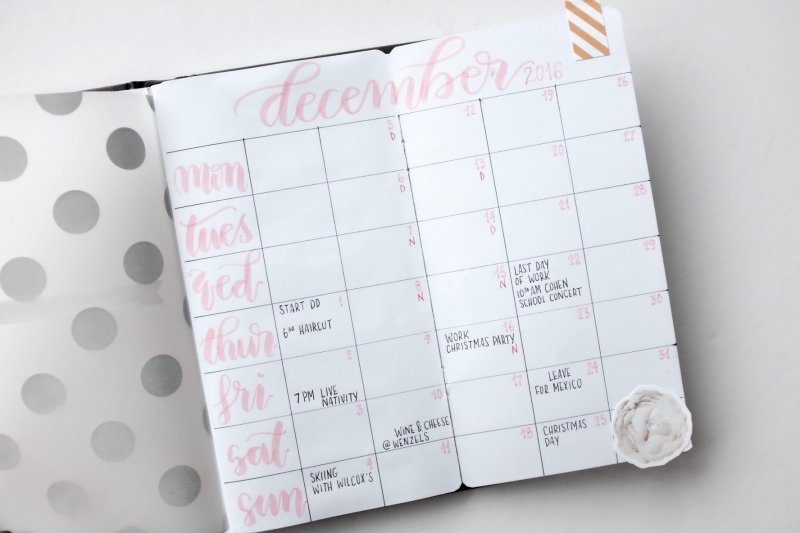 december 2016
mon
5
D
12
19
26
tues
6
D
13
D
20
27
wed
7
N
14
D
21
28
thur
1
START DD
6³⁰ HAIRCUT
8
N
15
N
22
LAST DAY
OF WORK
10³⁰AM COHEN
SCHOOL CONCERT
29
fri
2
7PM LIVE
NATIVITY
9
16
WORK
CHRISTMAS PARTY
N
23
30
sat
3
10
WINE & CHEESE
@ WENZELS
17
24
LEAVE
FOR MEXICO
31
sun
4
SKIING
WITH WILCOX'S
11
18
25
CHRISTMAS
DAY